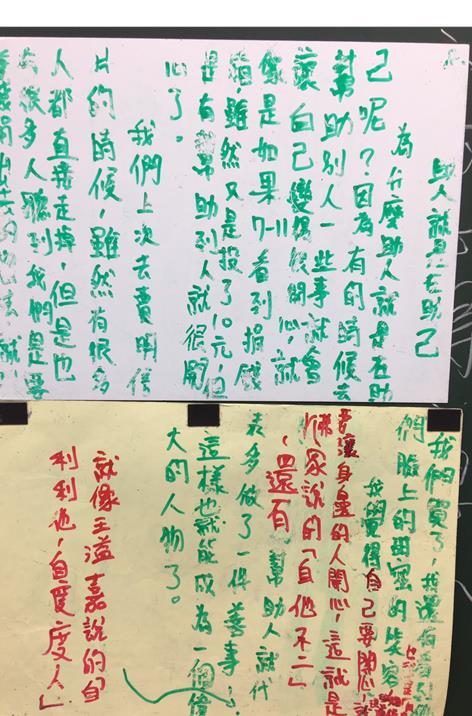 助人就是在助己
為什麼助人就是在助
己呢？因為有的時候去
幫助別人一些事就會
讓自己變得很開心，就
像是如果7-11看到捐錢
箱，雖然只是投了10元，但
是有幫助到人就很開
心了。
我們上次去賣明信
片的時候，雖然有很多
人都直接走掉，但是也
有很多人聽到我們是要
我們買了，我還有看到
們臉上的甜蜜的笑容
我覺得自己要開心，
要讓身邊的人開心，這就是
佛家說的「自他不二」
，還有幫助人就代
表多做了一件善事，
這樣也就能成為一個偉
大的人物了。
就像王溢嘉說的自
利利他，自度度人」